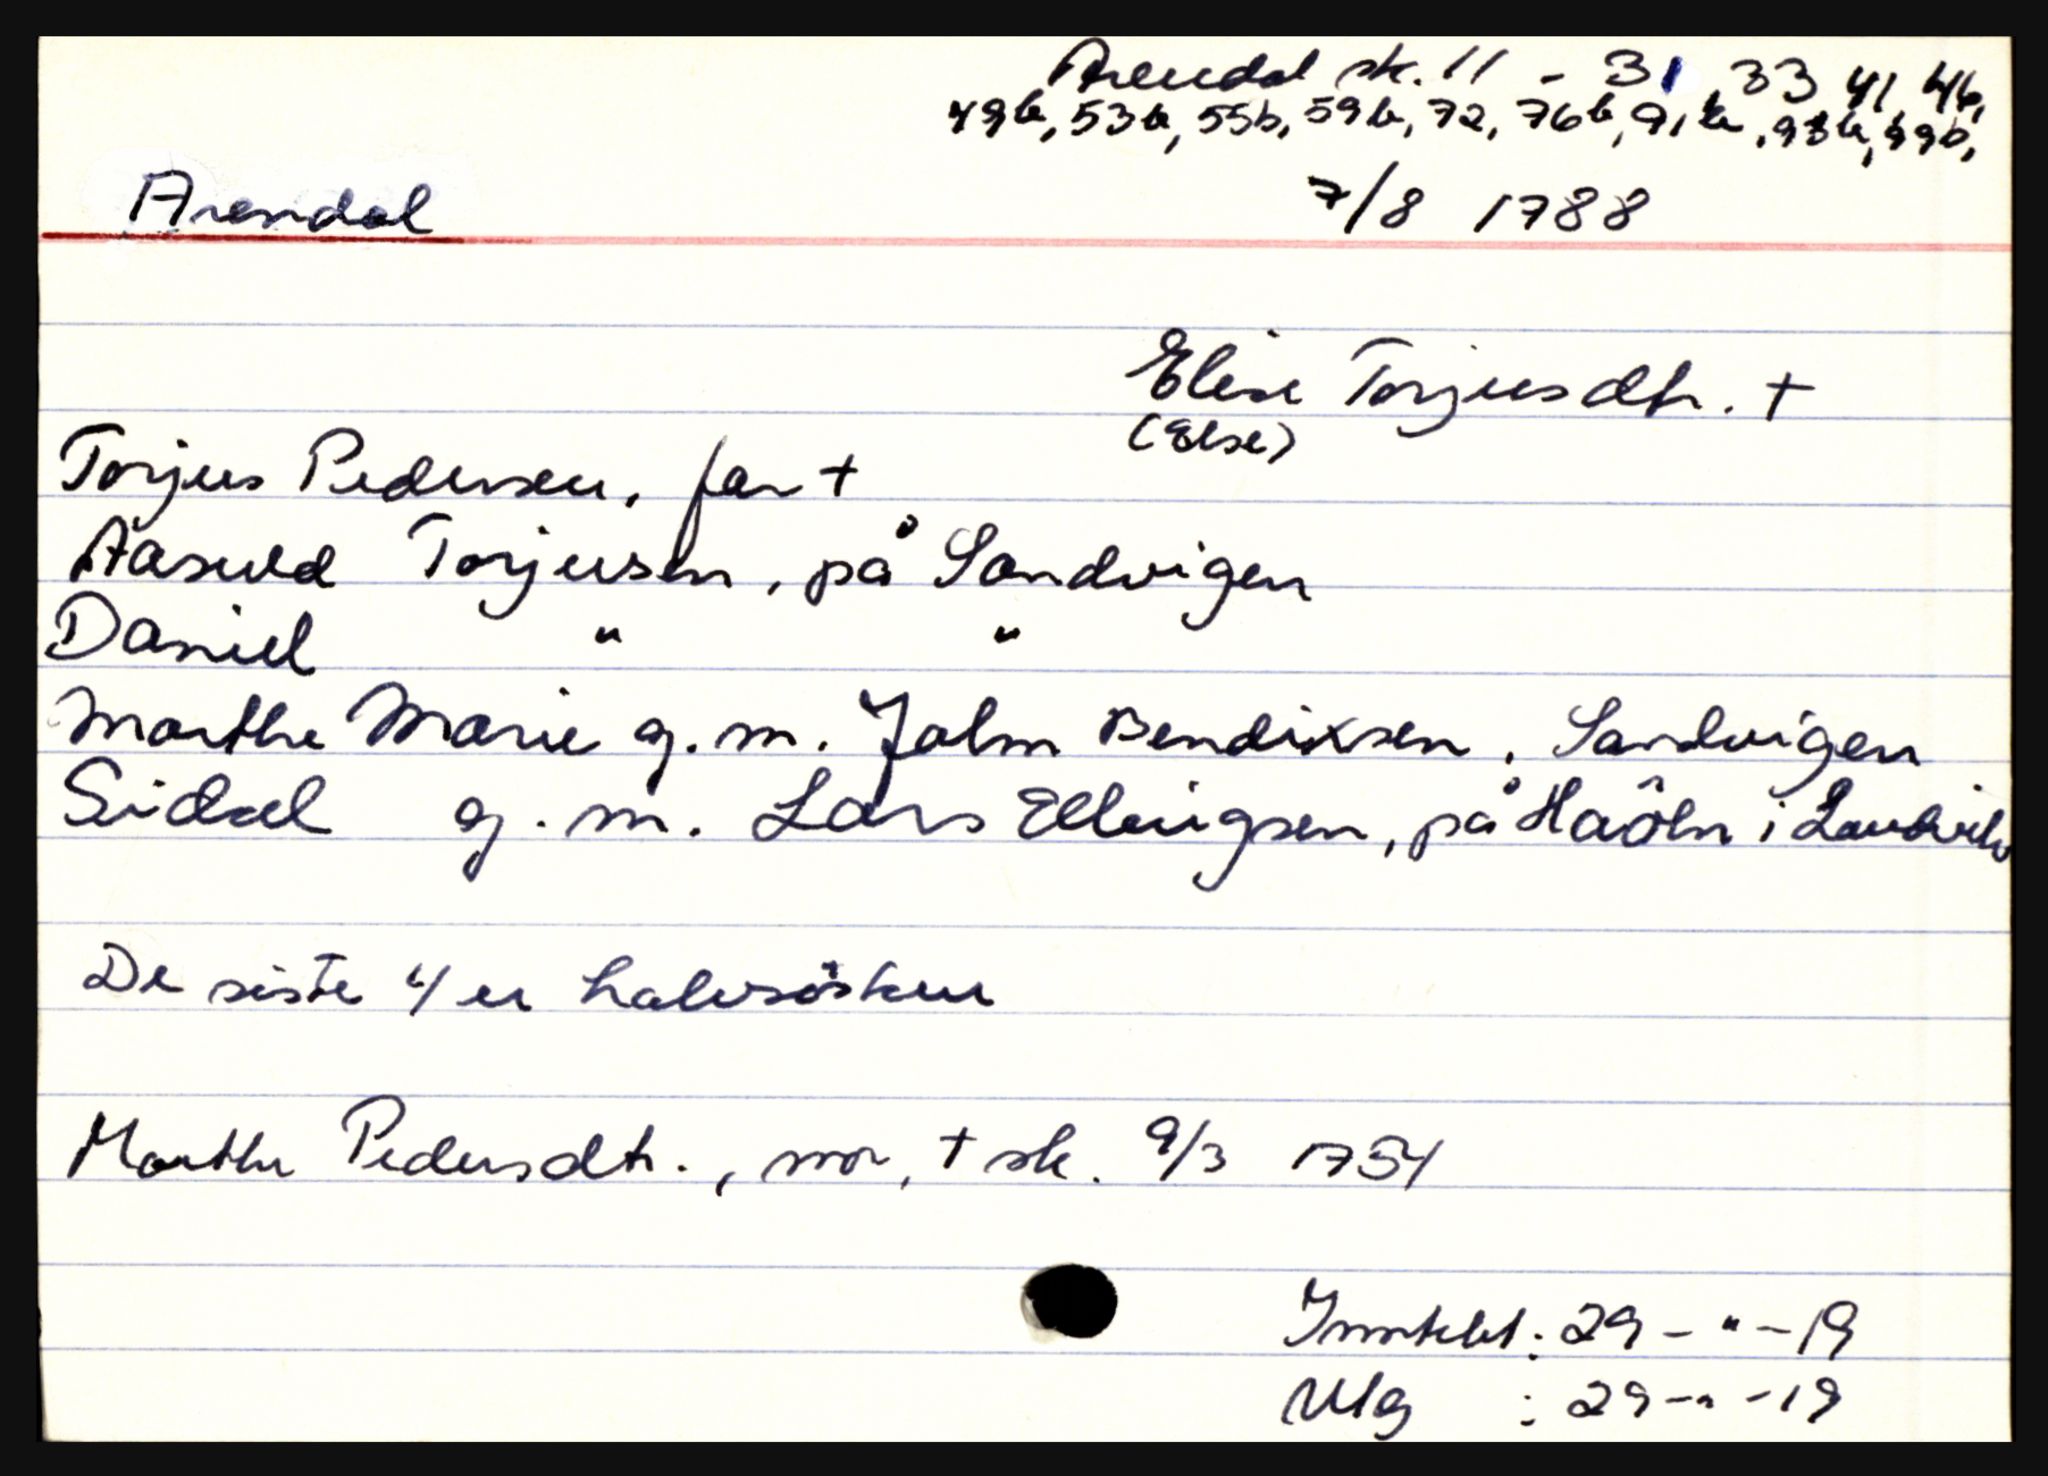 Arendal sk. 11 - 31, 33, 41, 46,
49b, 53b, 55b, 59b, 72, 76b, 91b, 93b, 99b,
Arendal 7/8 1788
Elise Torjusdtr. +
(Else)
Torjus Pedersen, far +
Aasuld Torjusen, på Sandvigen
Daniel " "
Marthe Marie g.m. John Bendixsen, Sandvigen
Sidsel g.m. Lars Ellingsen, på Haöln i Landvik
De siste 4 er halvsösken
Marthe Pedersdtr., mor, + sk. 9/3 1754
Inntekt: 29 - " - 19
Utg : 29 - " - 19